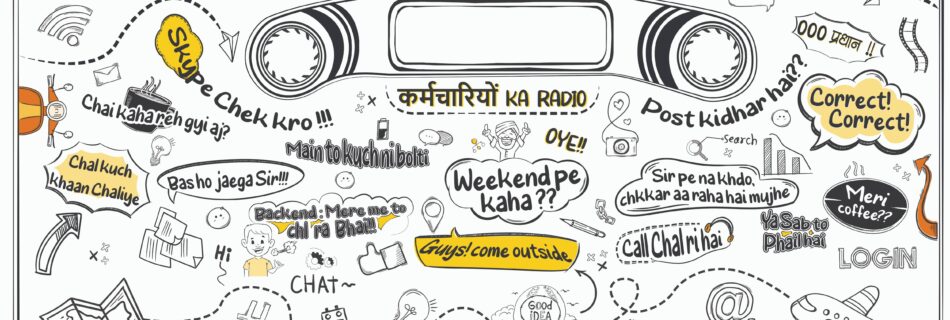 Skype Chek kro !!!
कर्मचारियों KA RADIO
000 प्रधान !!
Post kidhar hai??
Correct!
Correct!
Chai kaha reh gyi aj?
OYE!!
Search
Main to kuch ni bolti
Chal kuch
khaan Chaliye
Bas ho jaega Sir!!!
Weekend pe
kaha ??
Sir pe na khdo,
chkkar aa raha hai mujhe
Meri
coffee??
Backend : Mere me to
chl ra Bhai!!!
Guys! come outside
Call Chal ri hai
Ya Sab to
Phail hai
LOGIN
Hi
CHAT~
GOOD
IDEA
@